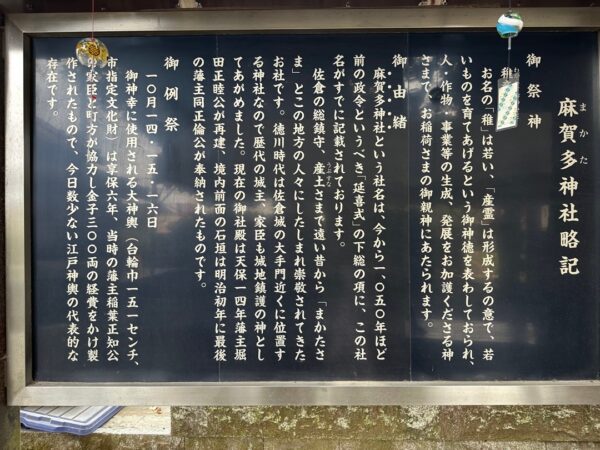 麻賀多神社略記
まかた
御祭神
稚
お名の「稚」は若い、「産霊」は形成するの意で、若
いものを育てあげるという御神徳を表わしておられ、
人・作物・事業等の生成、発展をお加護くださる神
さまで、お稲荷さまの御親神にあたられます。
御由緒
麻賀多神社という社名は、今から一、〇五〇年ほど
前の政令というべき「延喜式」の下総の項に、この社
名がすでに記載されております。
佐倉の総鎮守、産土さまで遠い昔から「まかたさ
うぶすな
ま」とこの地方の人々にしたしまれ崇敬されてきた
お社です。徳川時代は佐倉城の大手門近くに位置す
る神社なので歴代の城主、家臣も城地鎮護の神とし
てあがめました。現在の御社殿は天保一四年藩主堀
田正睦公が再建、境内前面の石垣は明治初年に最後
の藩主同正倫公が奉納されたものです。
御例祭
一〇月一四・一五・一六日
御神幸に使用される大神輿（台輪巾一五一センチ、
市指定文化財）は享保六年、当時の藩主稲葉正知公
が家臣、町方が協力し金子三〇〇両の経費をかけ製
作されたもので、今日数少ない江戸神輿の代表的な
存在です。